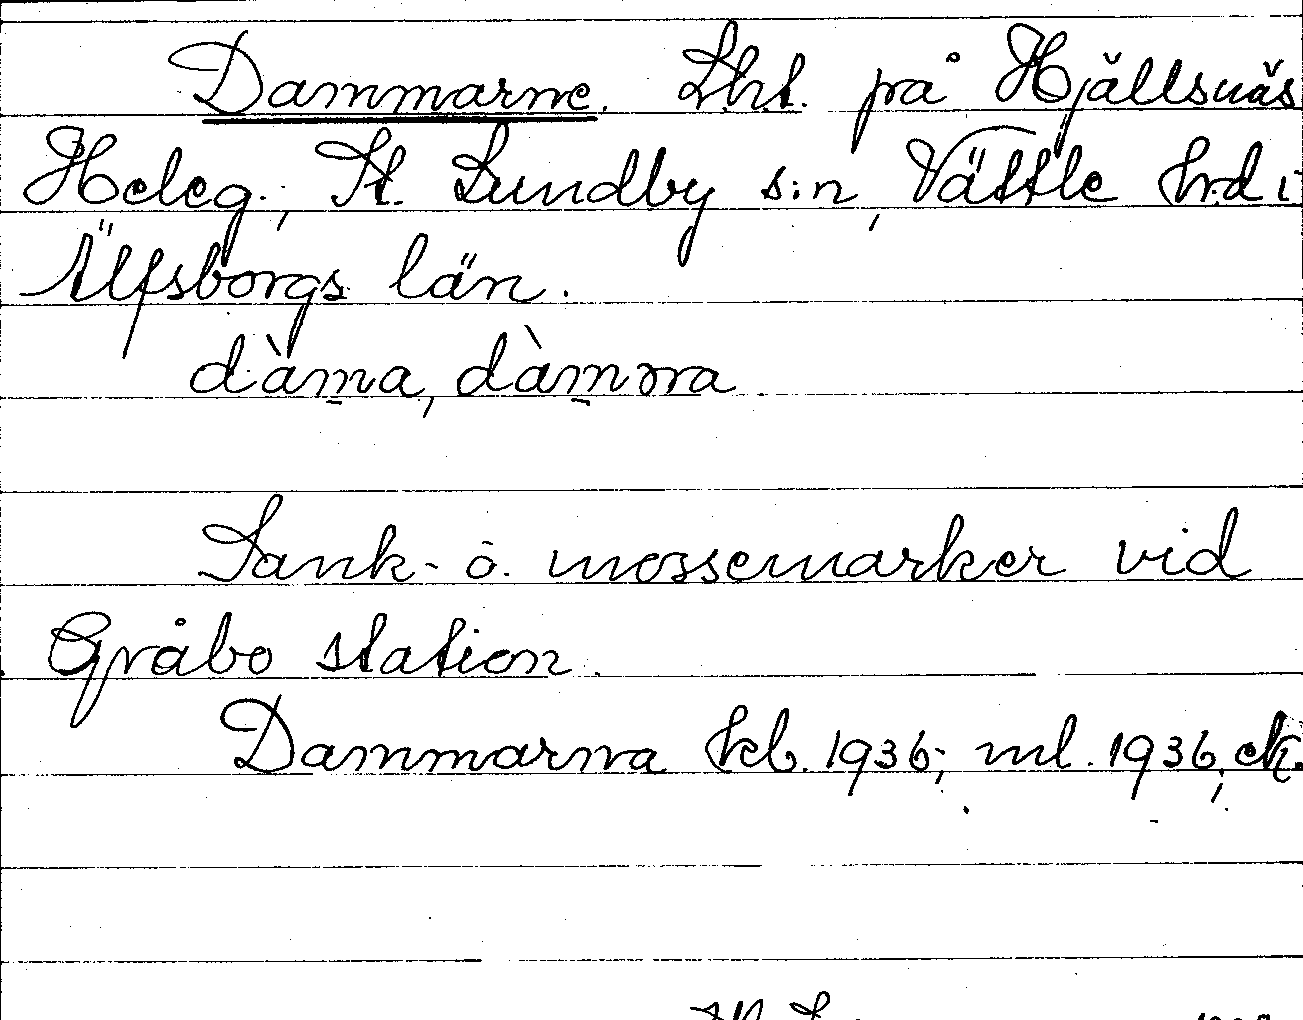 Dammarne. Lht. på Hjällsnäs
Heleg., St. Lundby s:n, Vättle hrd i
Älfsborgs län.
dàm̠a, dàm̠ɔra
Sank- o. mossemarker vid
Gråbo station.
Dammarna kb. 1936; ml. 1936, ek.